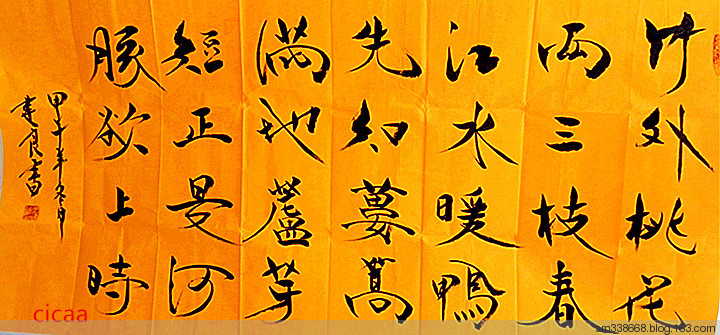 竹外桃花
兩三枝春
江水暖鴨
先知蔞蒿
滿地蘆芽
短正是河
豚欲上時
甲午年冬月
書
cicaa
zm338668.blog.163.com